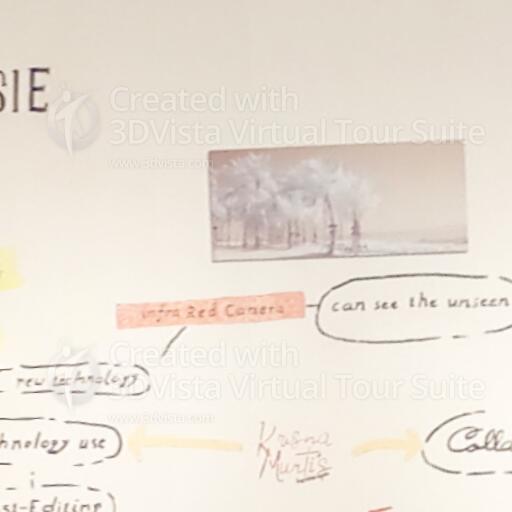 SIE
Created with
3DVista Virtual Tour Suite
www.3dvista.com
infra Red Camera
can see the unseen
new technology
Created with
3DVista Virtual Tour Suite
www.3dvista.com
hnology use
Krisna
Murtis
Colla
st-Editing